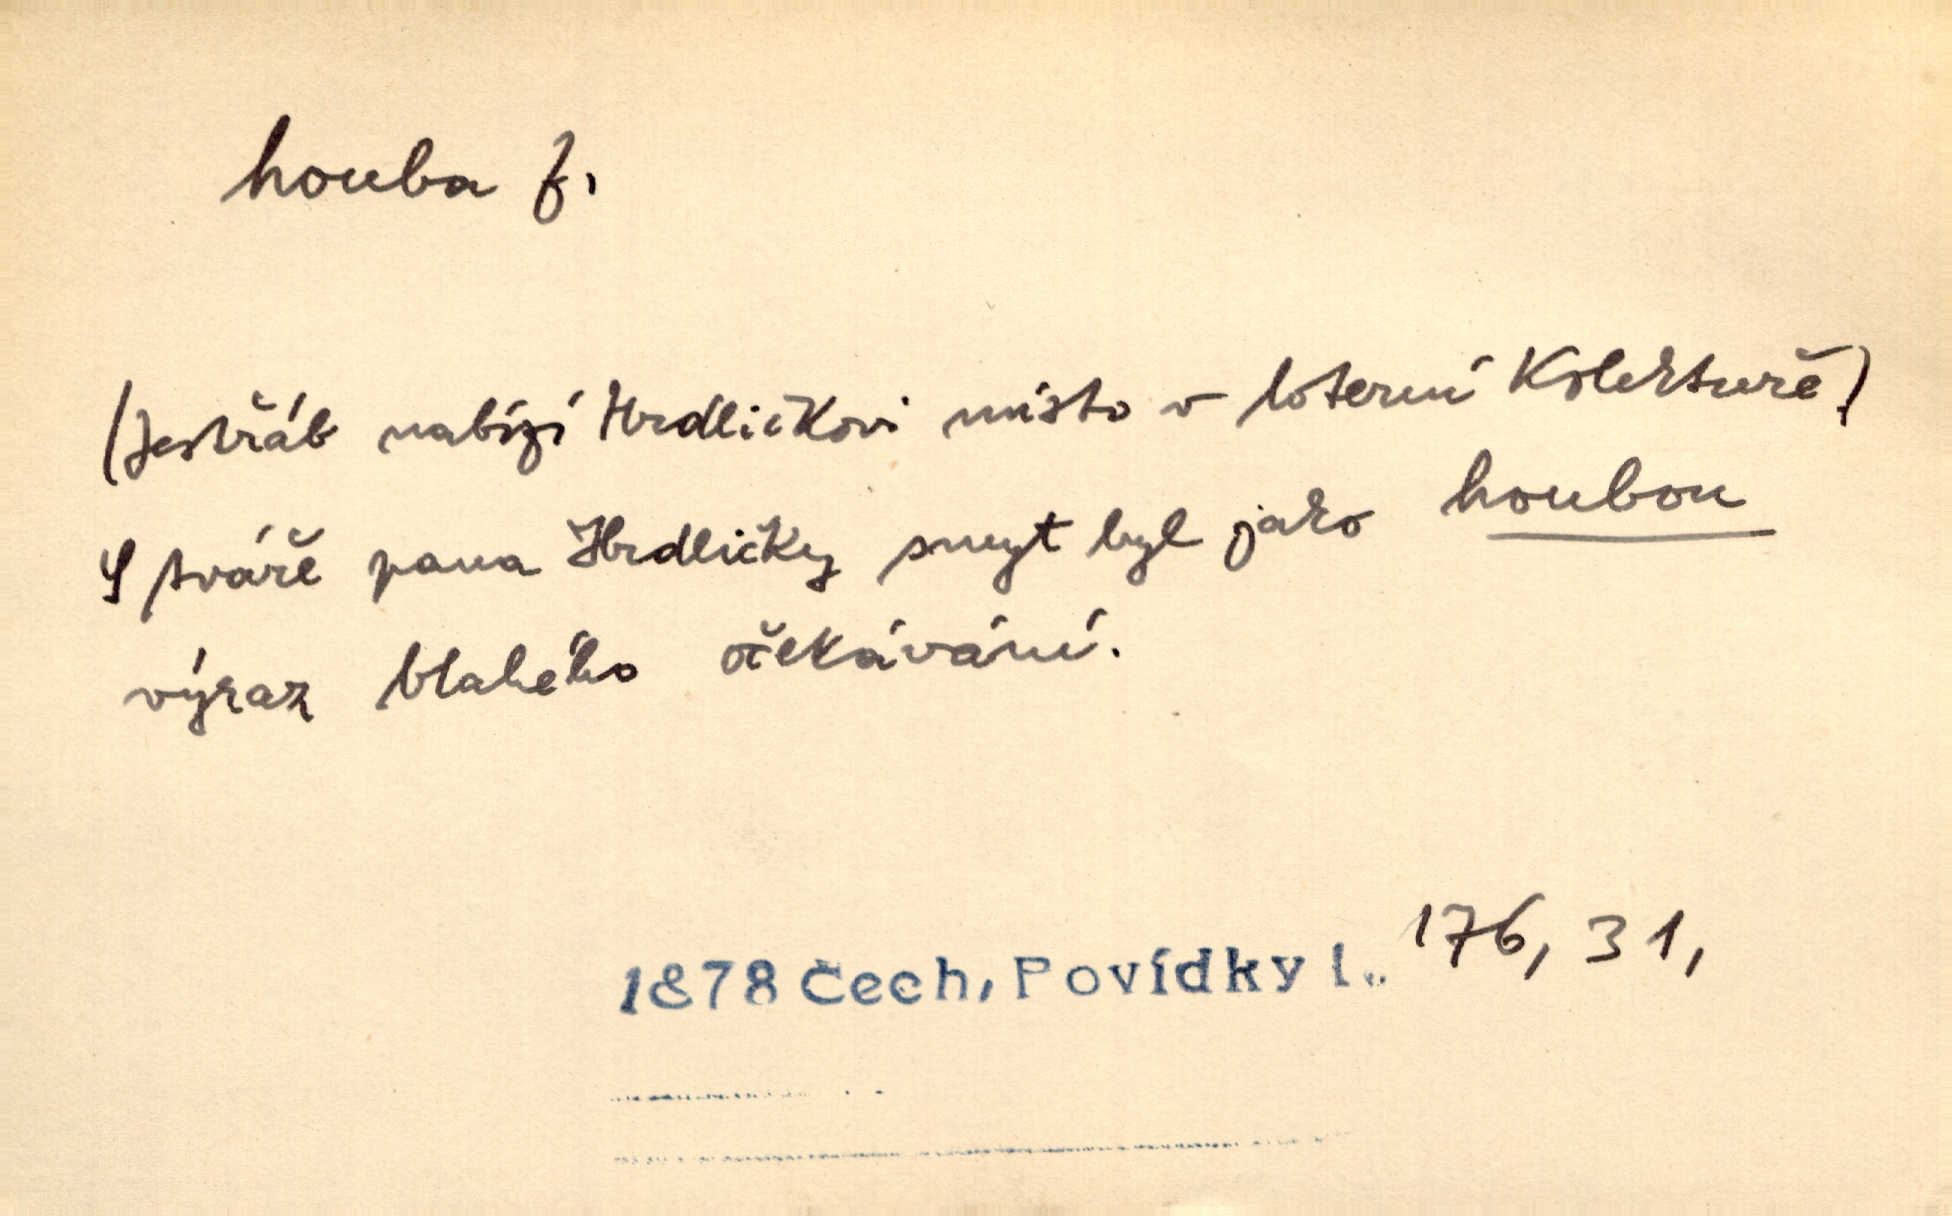 houba f.
(Jestřáb nabízí Hrdličkovi místo v loterní Kolektuře)
S tváře pana Hrdličky smyt byl jako houbou
výraz blahého očekávání.
1878 Čech, Povídky I. 176, 31,